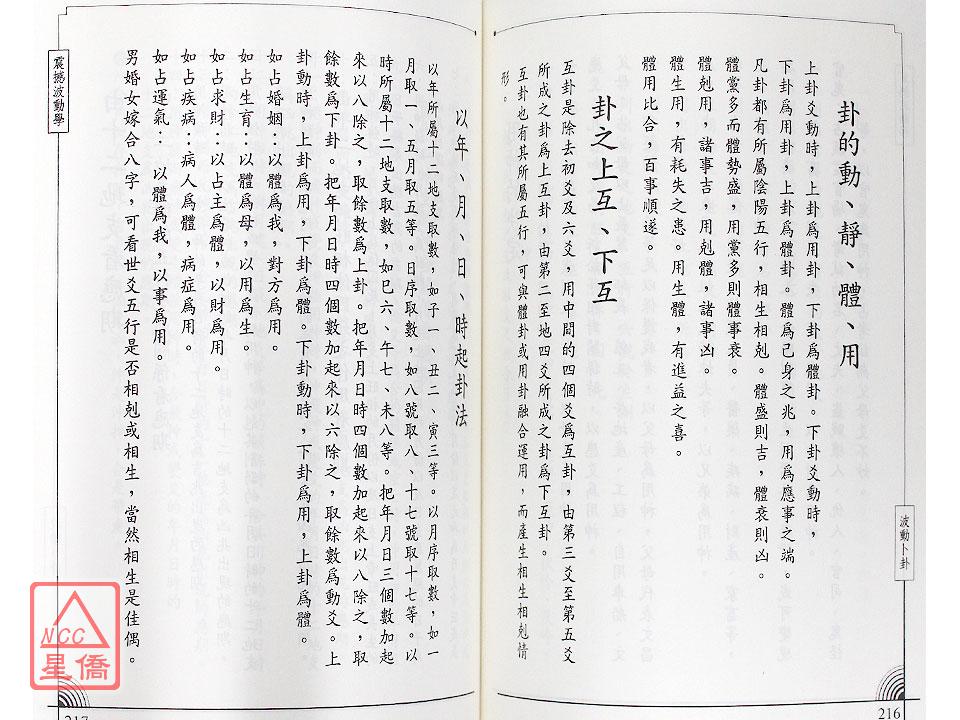 卦的動、靜、體、用
上卦爻動時，上卦爲用卦，下卦爲體卦。下卦爻動時，
下卦爲用卦，上卦爲體卦。體爲己身之兆，用爲應事之端。
凡卦都有所屬陰陽五行，相生相剋。體盛則吉，體衰則凶。
體黨多而體勢盛，用黨多則體事衰。
體剋用，諸事吉，用剋體，諸事凶。
體生用，有耗失之患。用生體，有進益之喜。
體用比合，百事順遂。
卦之上互、下互
互卦是除去初爻及六爻，用中間的四個爻爲互卦，由第三爻至第五爻
所成之卦爲上互卦，由第二至地四爻所成之卦爲下互卦。
互卦也有其所屬五行，可與體卦或用卦融合運用，而產生相生相剋情
形。
波動卜卦
216
以年、月、日、時起卦法
以年所屬十二地支取數，如子一、丑二、寅三等。以月序取數，如一
月取一、五月取五等。日序取數，如八號取八、十七號取十七等。以
時所屬十二地支取數，如巳六、午七、未八等。把年月日三個數加起
來以八除之，取餘數爲上卦。把年月日時四個數加起來以八除之，取
餘數爲下卦。把年月日時四個數加起來以六除之，取餘數爲動爻。上
卦動時，上卦爲用，下卦爲體。下卦動時，下卦爲用，上卦爲體。
如占婚姻：以體爲我，對方爲用。
如占生育：以體爲母，以用爲生。
如占求財：以占主爲體，以財爲用。
如占疾病：病人爲體，病症爲用。
如占運氣：以體爲我，以事爲用。
男婚女嫁合八字，可看世爻五行是否相剋或相生，當然相生是佳偶。
震撼波動學
217
NCC
星僑